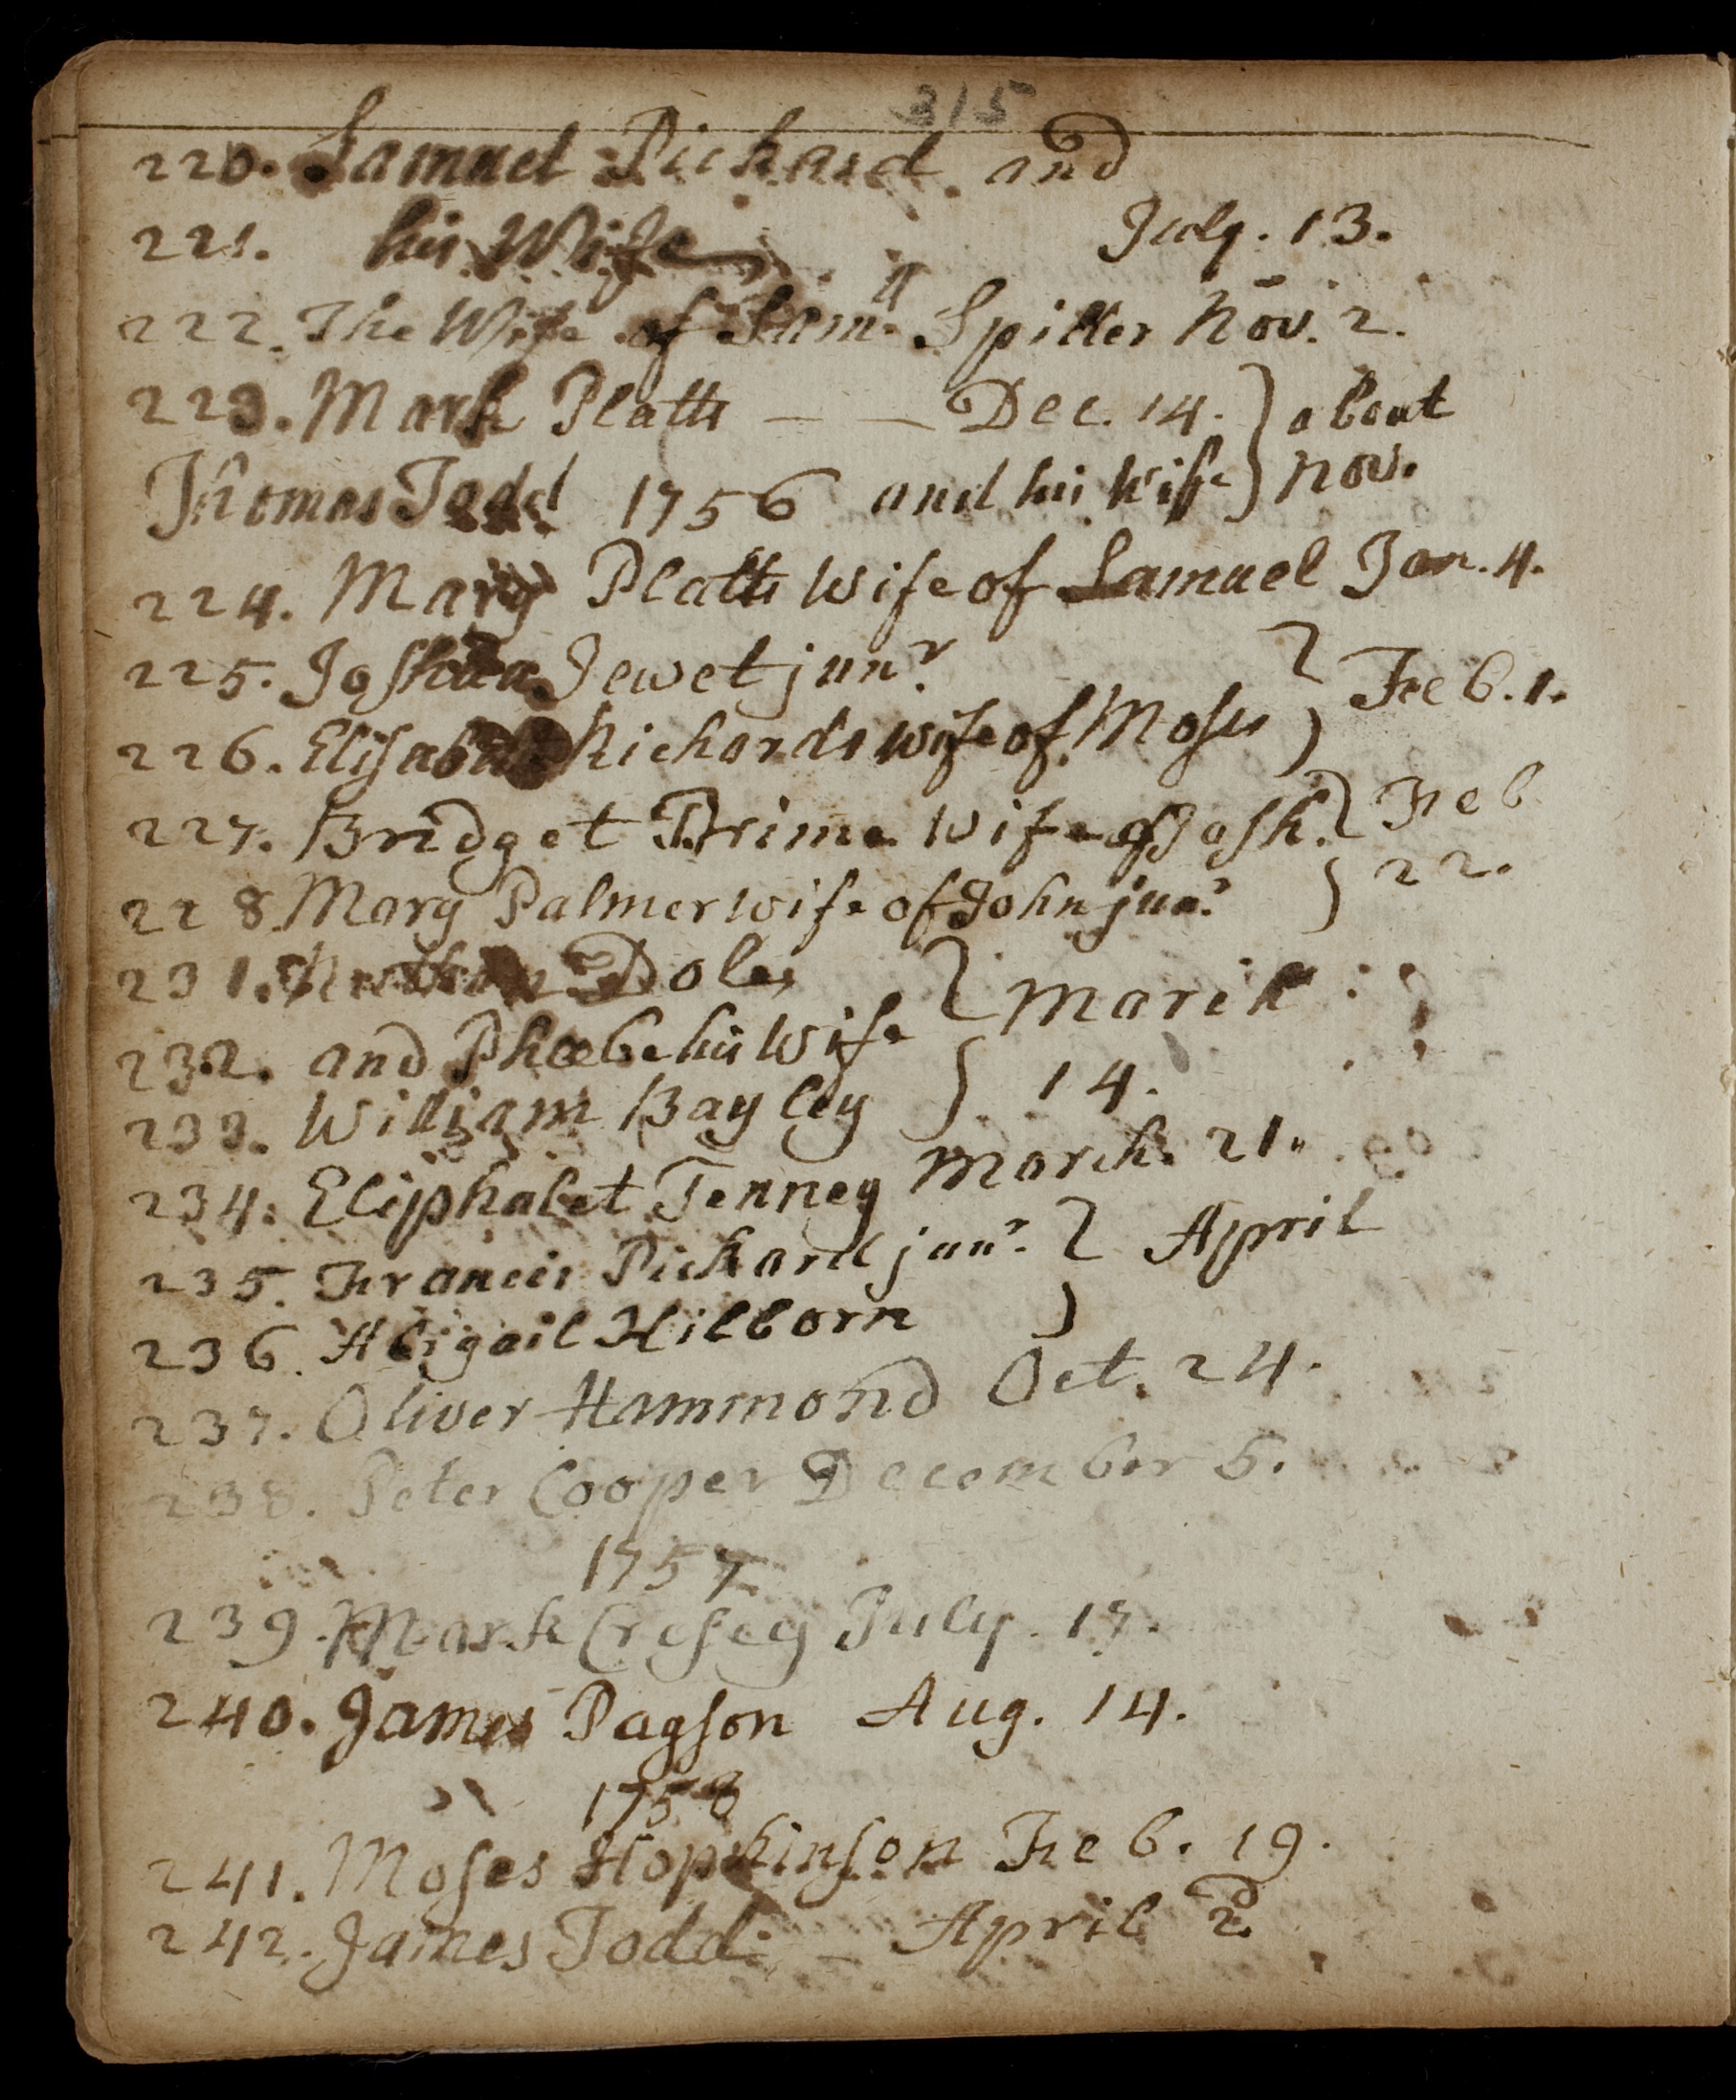 315
220. Samuel Pickard and
221. his Wife July. 13.
222. The Wife of Samll. Spiller Nov. 2.
223. Mark Platts — — Dec. 14. } about
Thomas Todd 1756 and his wife } Nov.
224. Mary Platts Wife of Samuel Jan. 4.
225. Joshua Jewet junr.
226. Elisabeth Richards wife of Moses } Feb. 1.
227. Bridget Prime Wife of Josh. } Feb
228. Mary Palmer wife of John junr. } 22.
231. Doles
232. and Phœbe his Wife } March
233. William Bayley } 14.
234. Eliphalet Tenney March. 21.
235. Francis Pickard junr. } April
236. Abigail Hilborn
237. Oliver Hammond Oct. 24.
238. Peter Cooper December 5.
1757
239. Mark Cresey July. 17.
240. James Payson Aug. 14.
1758
241. Moses Hopkinson Feb. 19.
242. James Todd — April 2d.